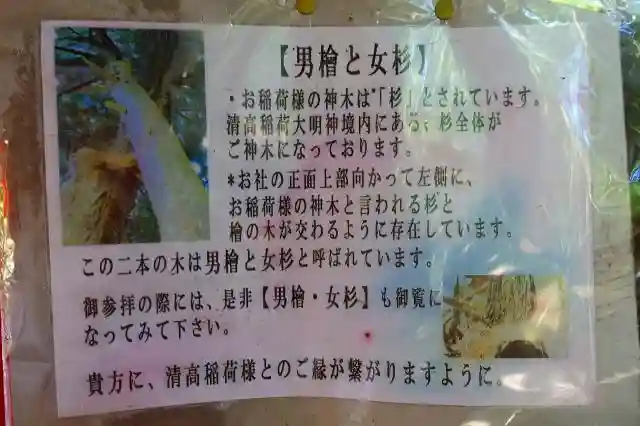 【男檜と女杉】
・お稲荷様の神木は「杉」とされています。
清高稲荷大明神境内にある、杉全体が
ご神木になっております。
*お社の正面上部向かって左側に、
お稲荷様の神木と言われる杉と
檜の木が交わるように存在しています。
この二本の木は男檜と女杉と呼ばれています。
御参拝の際には、是非【男檜・女杉】も御覧に
なってみて下さい。
貴方に、清高稲荷様とのご縁が繋がりますように。